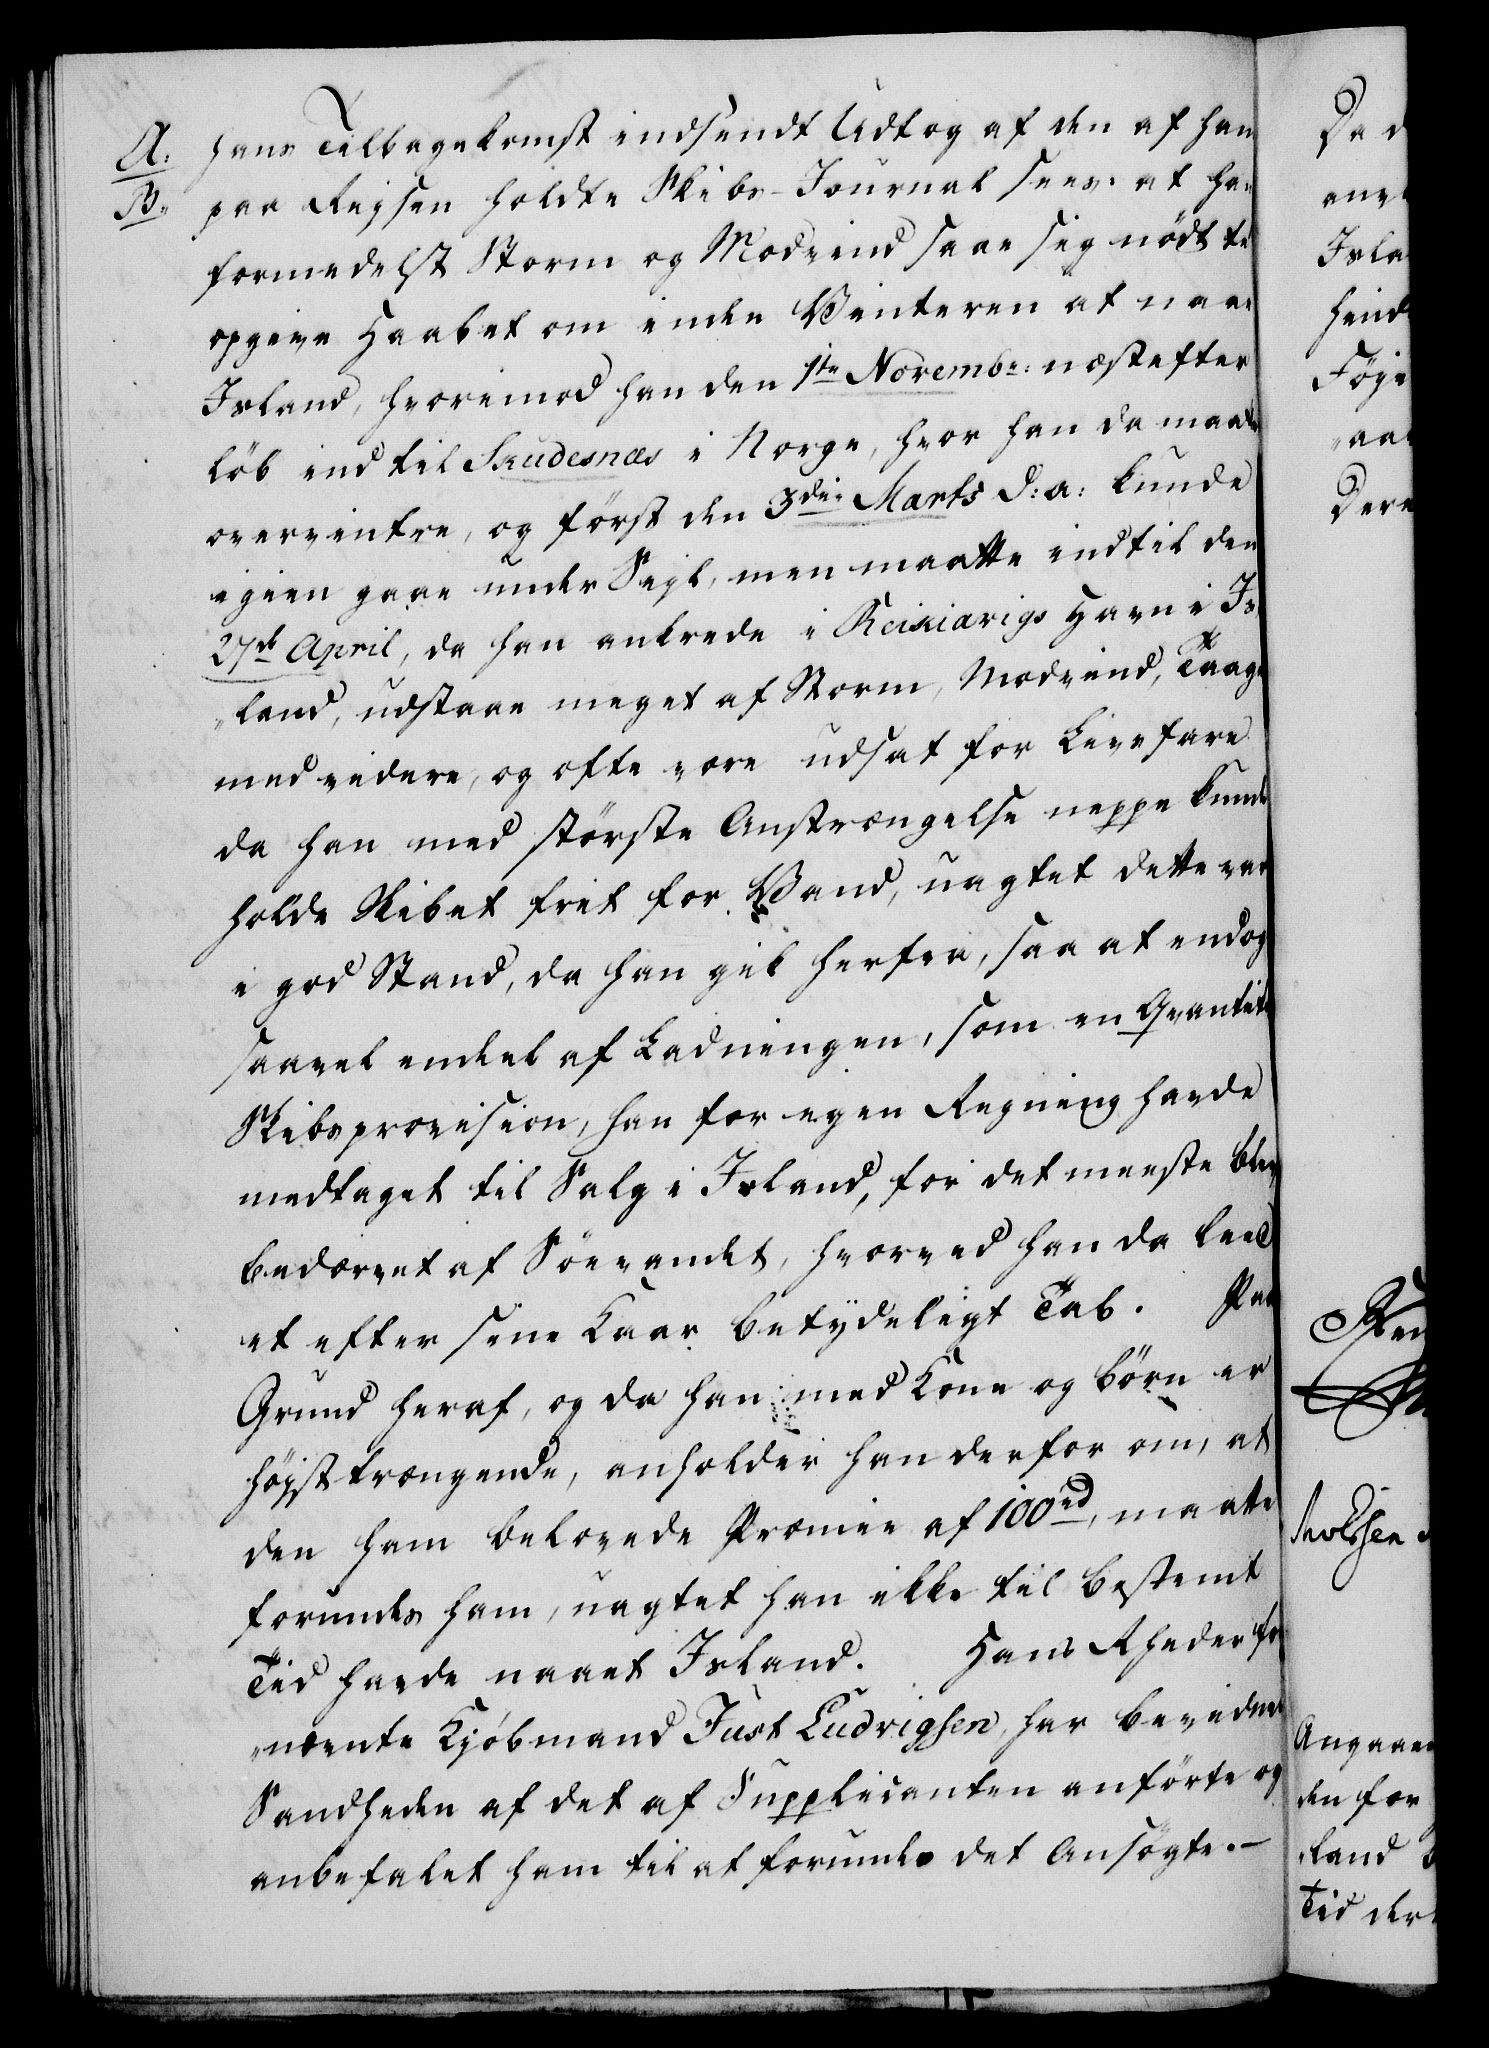 A. hans Tilbagekomst indsendt Udtog af den af ham
B. paa Rejsen holdte Skibs-Journal sees: at han
formedelst Storm og Modvind saae sig nödt til
opgive Haabet om inden Vinteren at naae
Island, hvorimod han den 1te Novembr: næstefter
löb ind til Skudesnæs i Norge, hvor han da maatte
overvintre, og först den 3die Marts d:a: kunde
igien gaae under Sejl, men maatte indtil den
27de April, da han ankrede i Reikiavigs Havn i Is„
„land, udstaae meget af Storm, Modvind, Taage
med videre, og ofte være udsat for Livsfare
da han med störste Anstrængelse neppe kunde
holde Skibet frit for Vand, uagtet dette var
i god Stand, da han gik herfra, saa at endog
saavel endeel af Ladningen, som en Qvantitet
Skibsprovision, han for egen Regning havde
medtaget til Salg i Island, for det meeste blev
bedærvet af Söevandet, hvorved han da leed
et efter sine Kaar betydeligt Tab. Paa
Grund heraf, og da han med Kone og börn er
höjsttrængende, anholder han derfor om, at
den ham belovede Præmie af 100rd, maatte
forundes ham, uagtet han ikke til bestemt
Tid havde naaet Island. Hans Rheder for„
„nævnte Kjöbmand Just Ludvigsen, har bevidnet
Sandheden af det af Supplicanten anförte og
anbefalet ham til at forundes det Ansögte.–
Da d
Isla
hind
Föge
Dere
Angaaen
den for
„land
Tid der